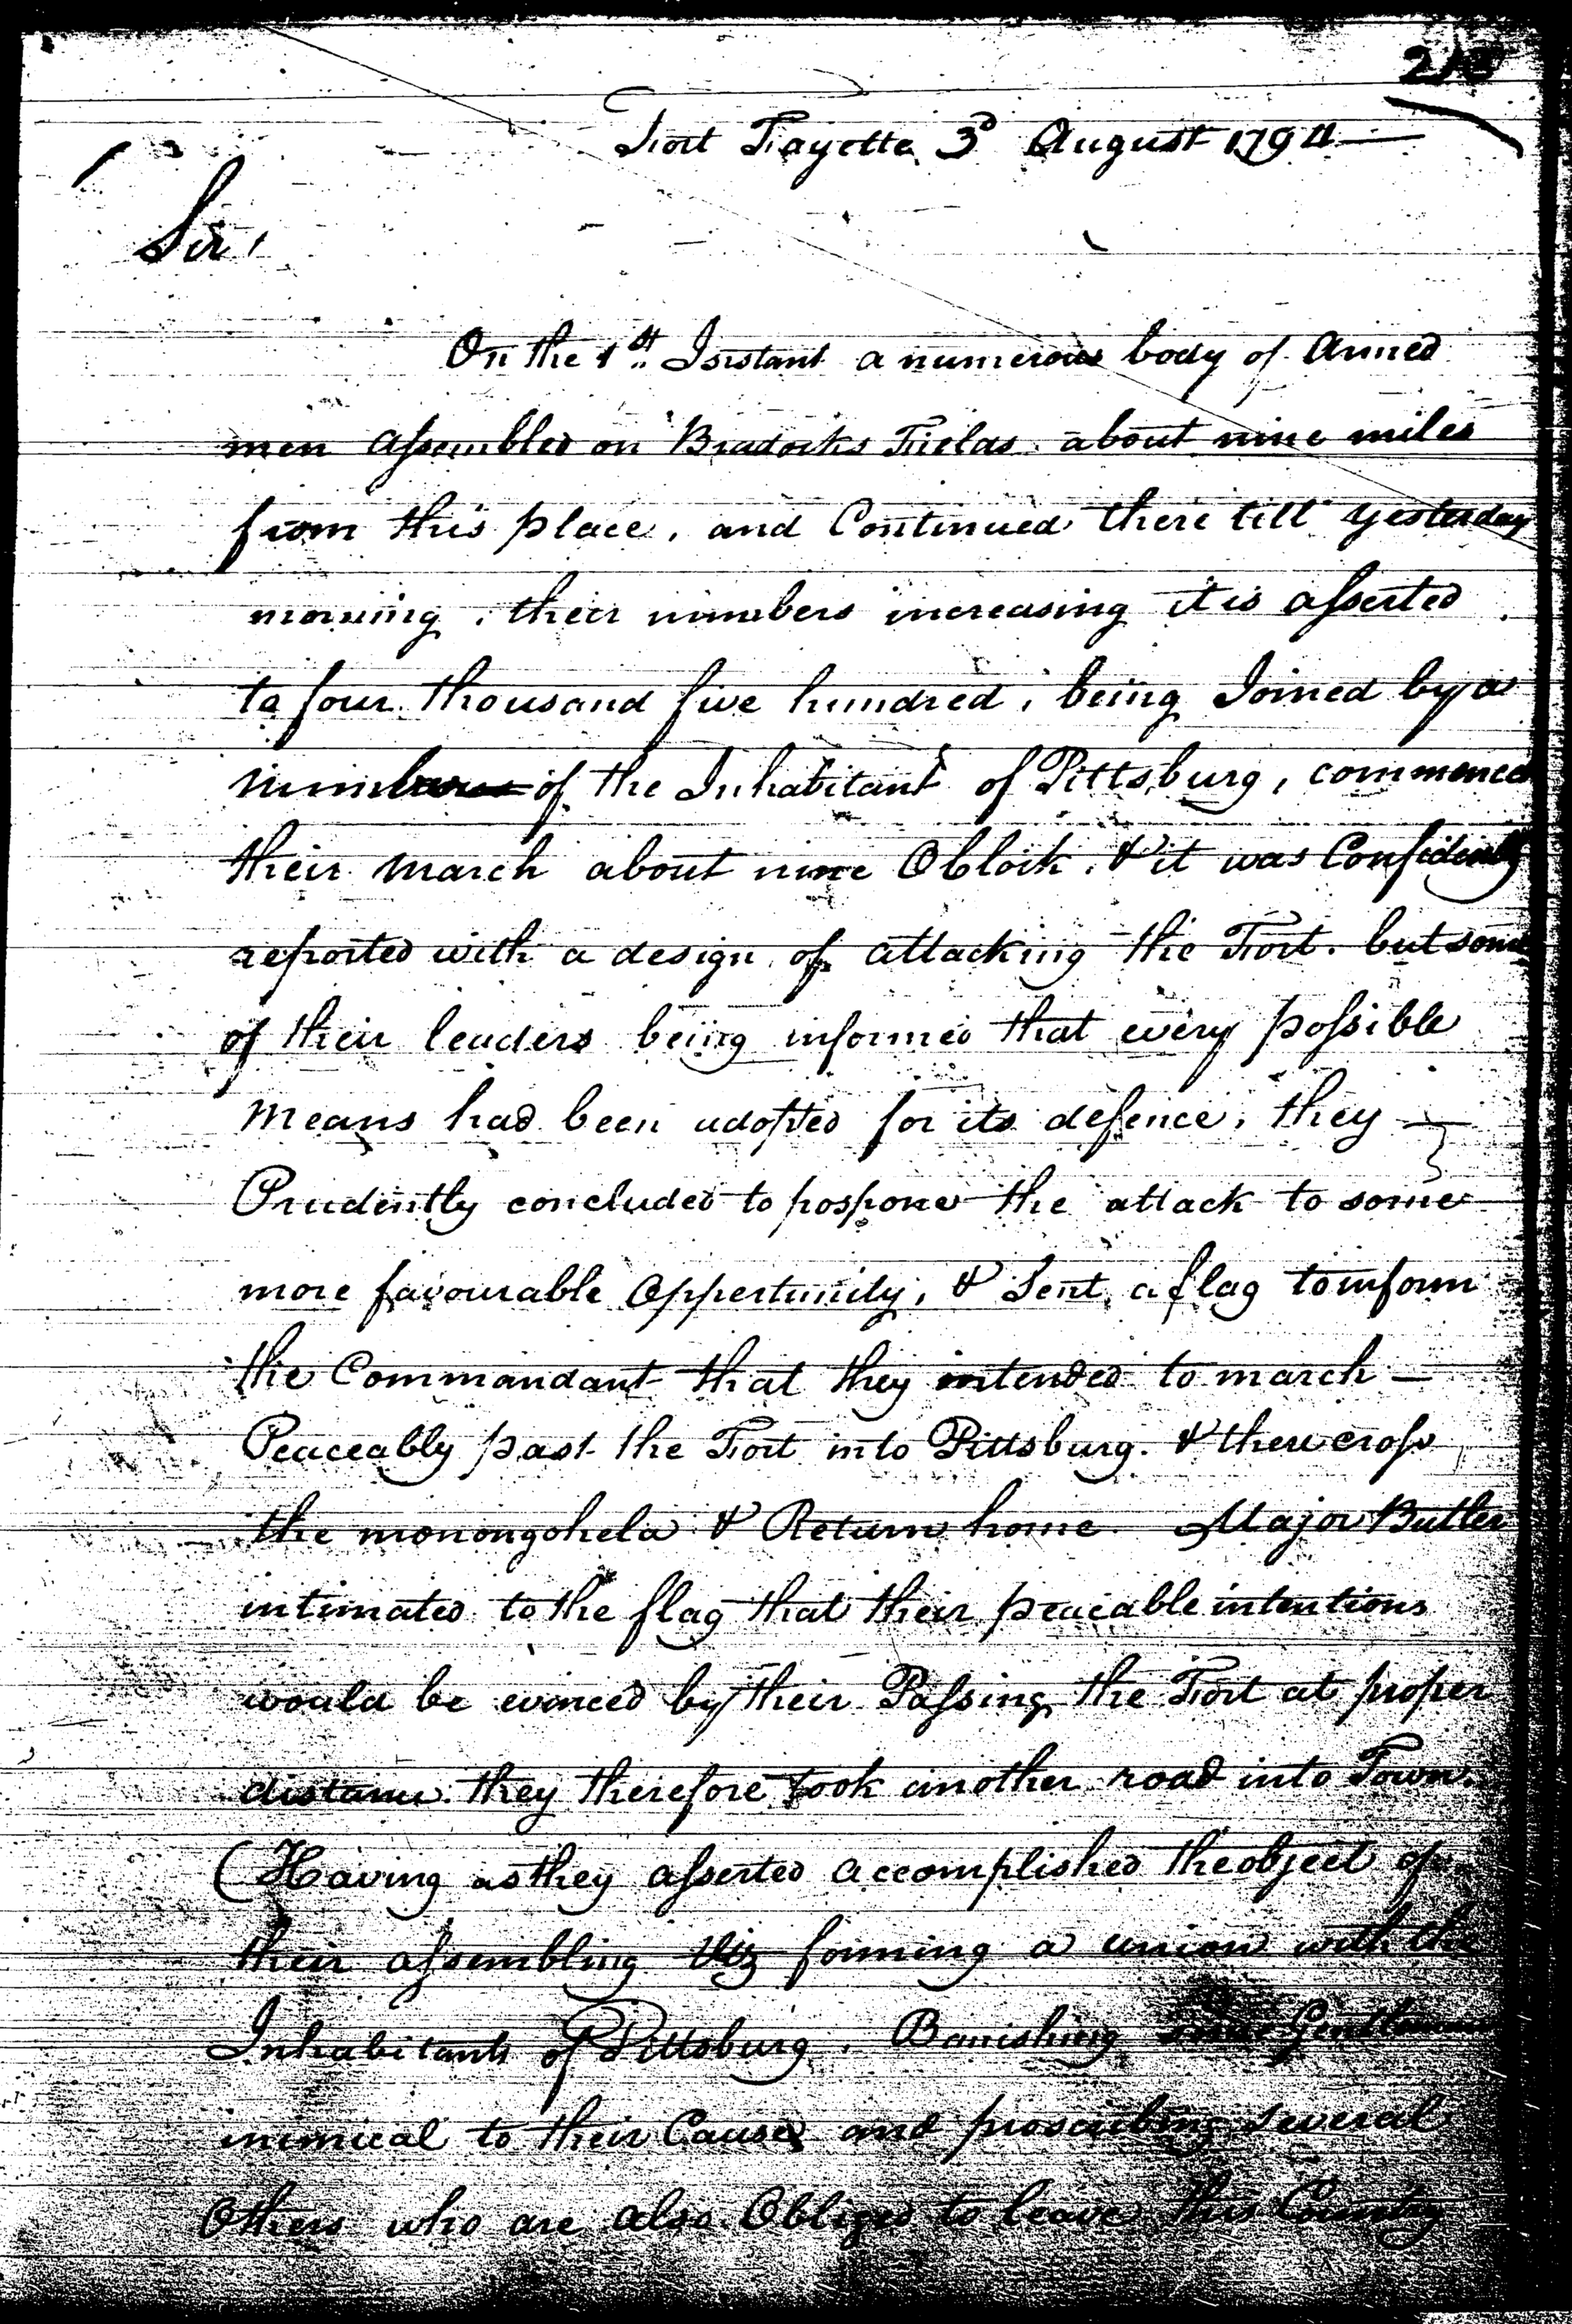 Fort Fayette 3d August 1794
Sir,
On the 1st Instant a numerous body of Armed
men assembled on Bradocks Fields about nine miles
from this place, and Continued there till yesterday
morning, their numbers increasing it is asserted
to four thousand five hundred, being Joined by a
number of the Inhabitants of Pittsburg, commenced
their march about nine OClock, & it was Confidently
reported with a design of attacking the Fort. but some
of their leaders being informed that every possible
means had been adopted for its defence, they
Prudently concluded to pospone the attack to some
more favourable Oppertunity, & Sent a flag to inform
the Commandant that they intended to march —
Peaceably past the Fort into Pittsburg. & there cross
the monongohela & Return home. Major Butler
intimated to the flag that their peaceable intentions
would be evinced by their Passing the Fort at proper
distance. they therefore took another road into Town.
(Having as they asserted accomplished the object of
their assembling Viz forming a union with the
Inhabitants of Pittsburg, Banishing some Gentlemen
inimical to their Cause and proscribing several
Others who are also Obliged to leave this Country